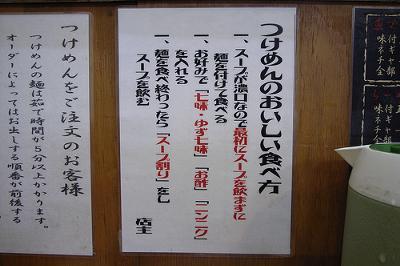 付ギャ部
味ネチ金
付ギャ部
味ネチ金
つけめんのおいしい食べ方
一、スープが濃口なので最初にスープを飲まずに
麺を付けて食べる
一、お好みで「七味・ゆず七味」「お酢」「ニンニク」
を入れる
一、麺を食べ終わったら「スープ割り」をし
スープを飲む
店主
つけめんをご注文のお客様
つけめんの麺は茹で時間が5分以上かかります。
オーダーによってはお出しする順番が前後する